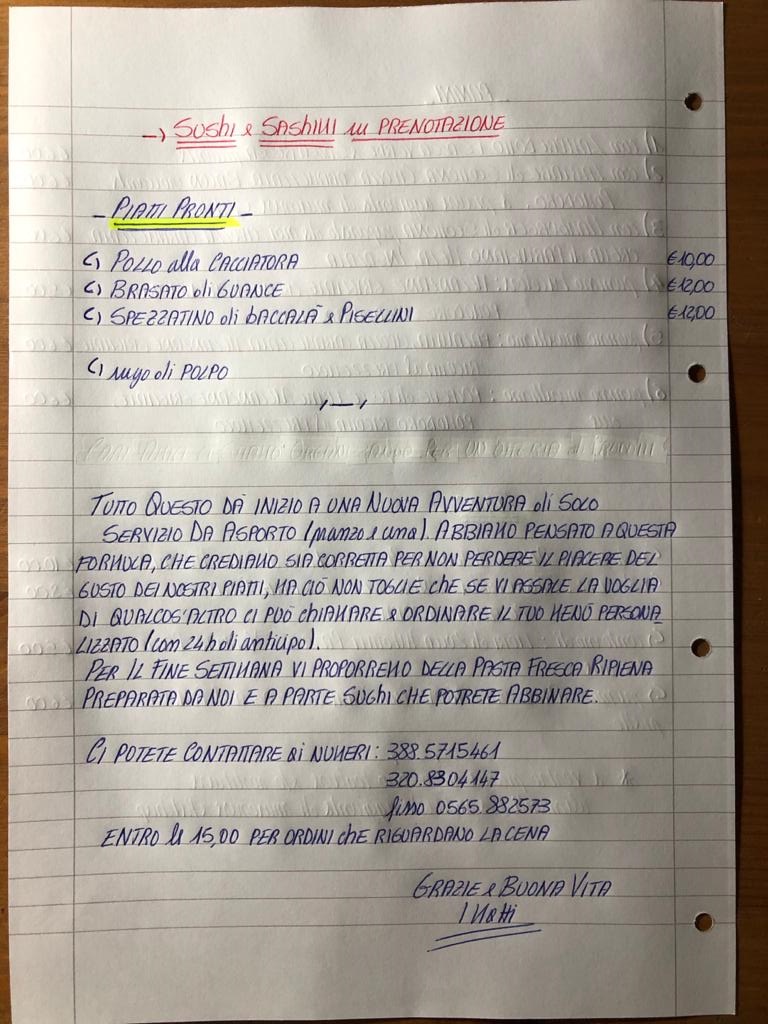 → SUSHI e SASHIMI su PRENOTAZIONE
- PIATTI PRONTI -
C) POLLO alla CACCIATORA €10,00
C) BRASATO di GUANCE €12,00
C) SPEZZATINO di BACCALÀ e PISELLINI €12,00
C) sugo di POLPO
TUTTO QUESTO DÀ INIZIO A UNA NUOVA AVVENTURA di SOLO
SERVIZIO DA ASPORTO (pranzo e cena). ABBIAMO PENSATO A QUESTA
FORMULA, CHE CREDIAMO SIA CORRETTA PER NON PERDERE IL PIACERE DEL
GUSTO DEI NOSTRI PIATTI, MA CIÒ NON TOGLIE CHE SE VI ASSALE LA VOGLIA
DI QUALCOS'ALTRO CI PUÒ CHIAMARE e ORDINARE IL TUO MENÙ PERSONA
LIZZATO (con 24h di anticipo).
PER IL FINE SETTIMANA VI PROPORREMO DELLA PASTA FRESCA RIPIENA
PREPARATA DA NOI E A PARTE SUGHI CHE POTRETE ABBINARE.
CI POTETE CONTATTARE ai NUMERI: 388.5715461
320.8304147
fisso 0565.882573
ENTRO le 15,00 PER ORDINI che RIGUARDANO LA CENA
GRAZIE e BUONA VITA
I Matti